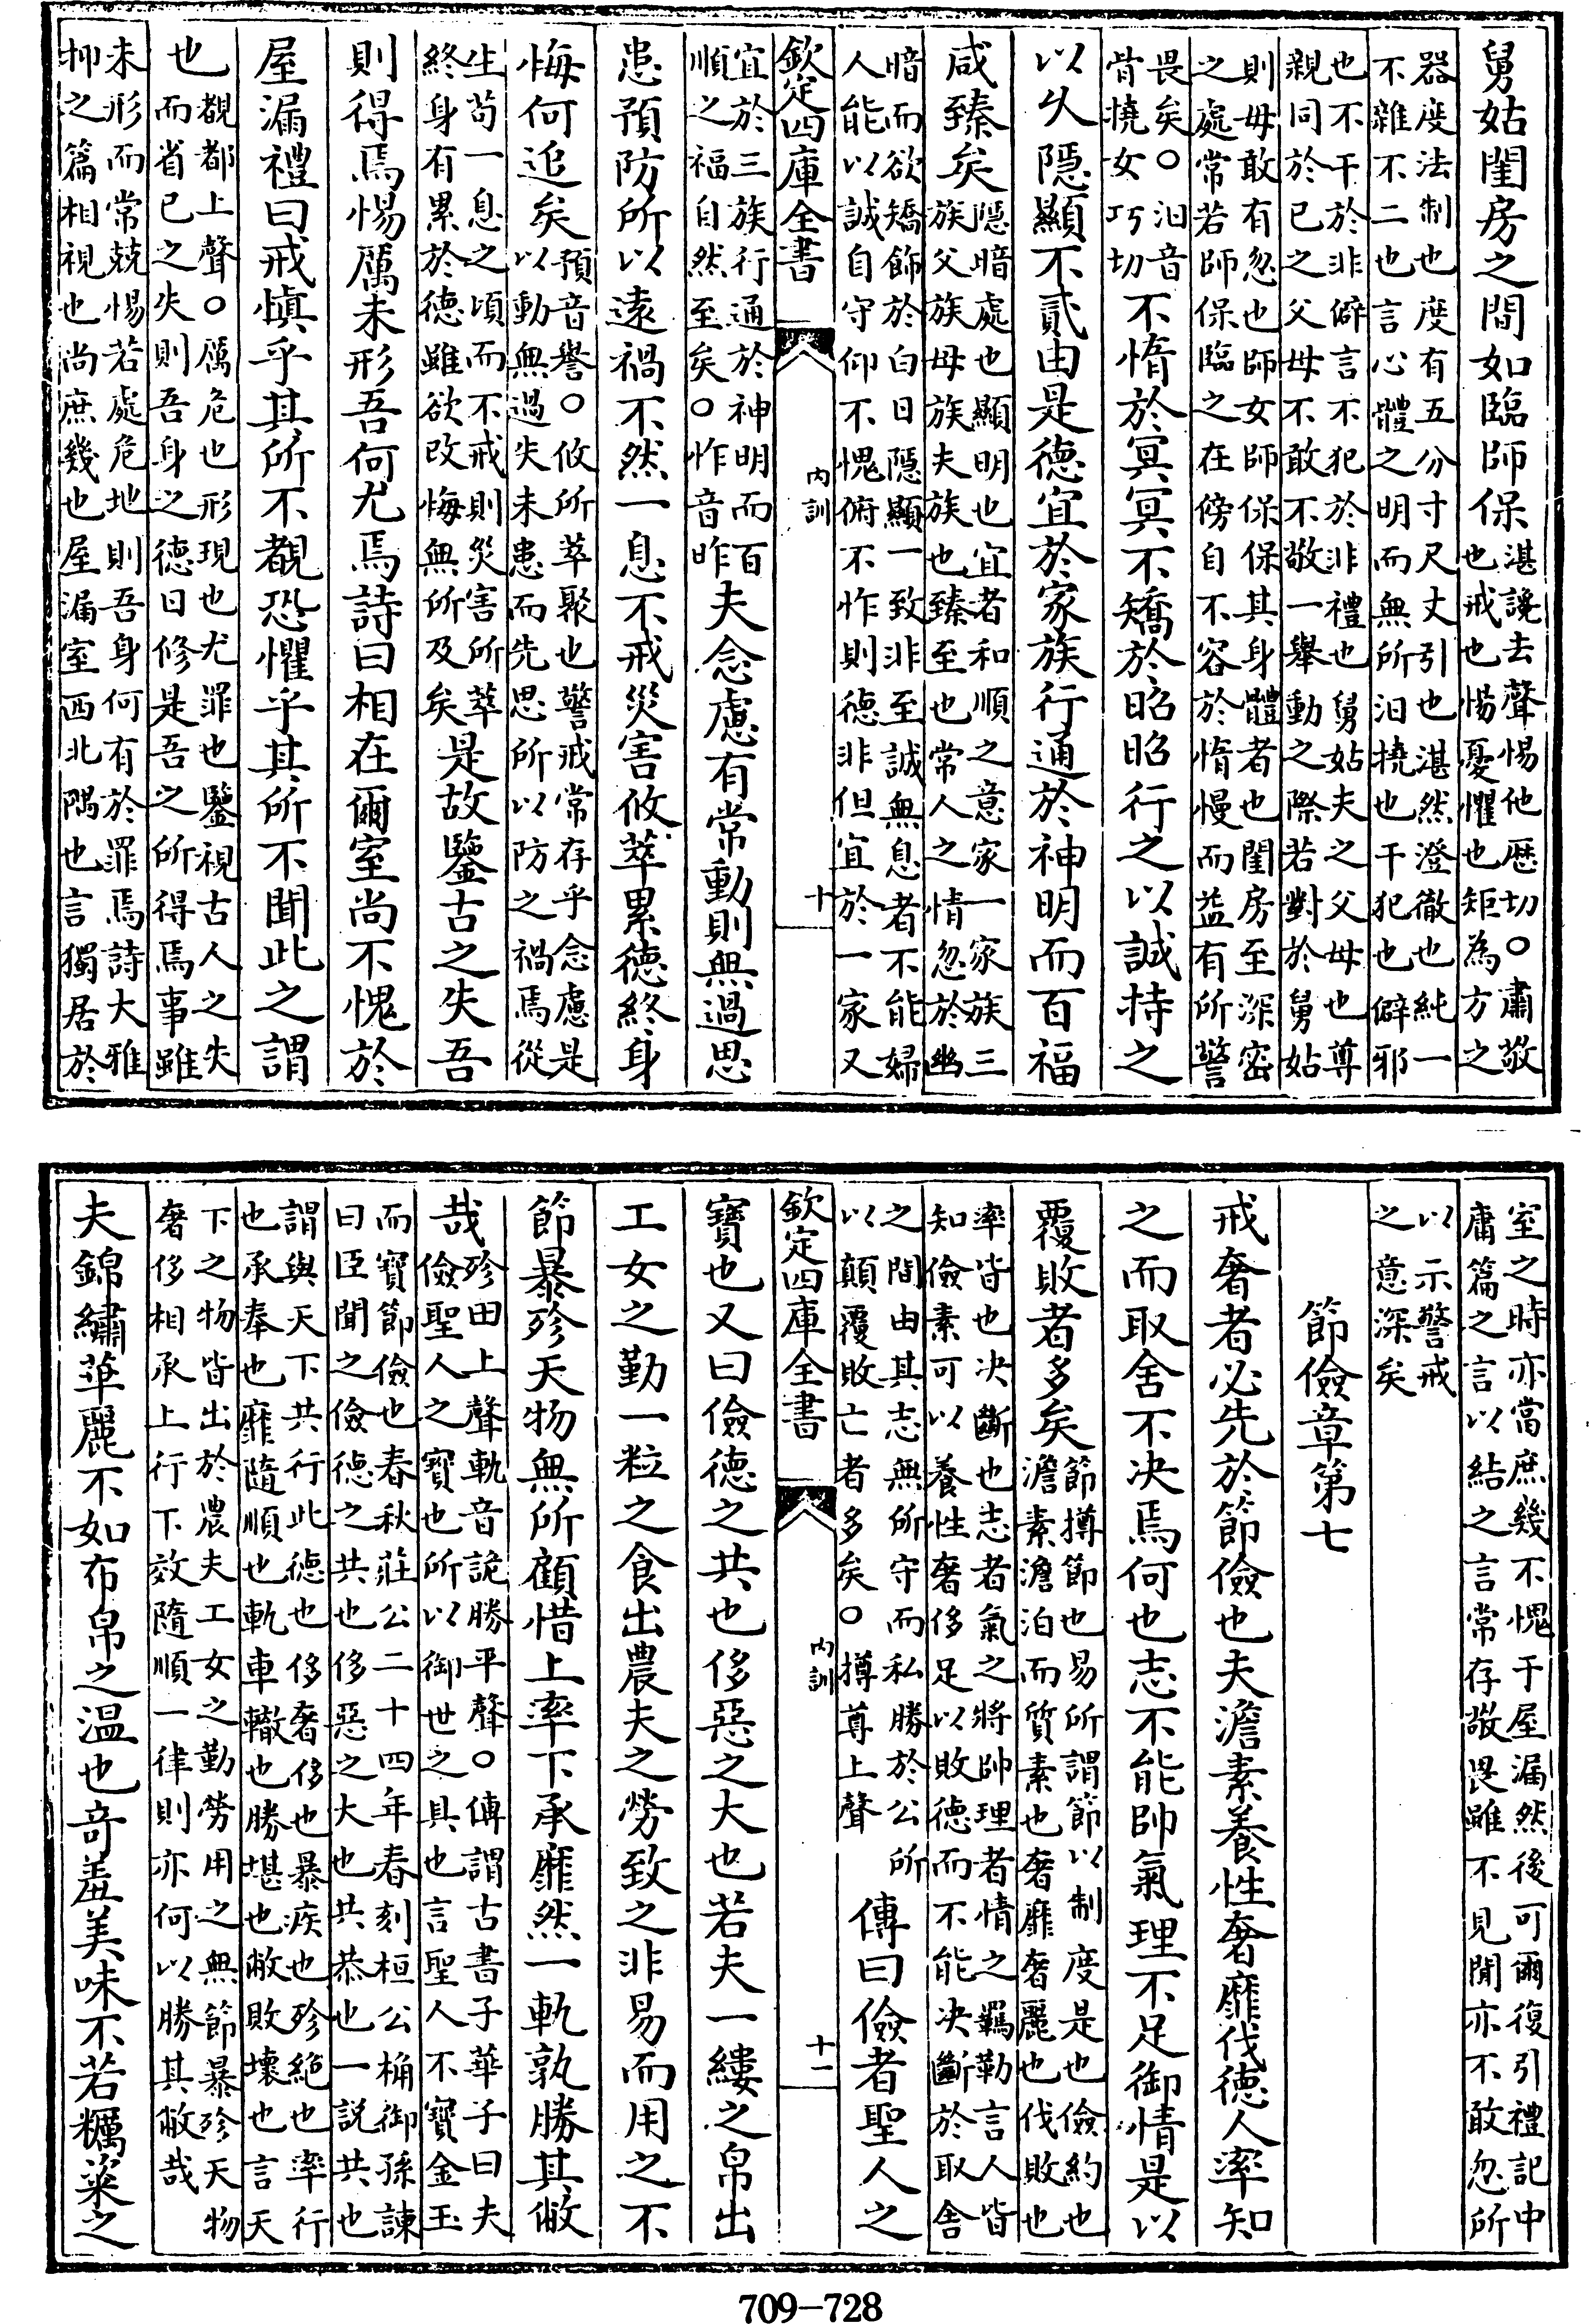 舅姑閨房之間如臨師保湛諓去聲惕他歴切○肅敬
也戒也惕憂懼也矩為方之
器度法制也度有五分寸尺丈引也湛然澄徹也純一
不雜不二也言心體之明而無所汩撓也干犯也僻邪
也不干於非僻言不犯於非禮也舅姑夫之父母也尊
親同於已之父母不敢不敬一舉動之際若對於舅姑
則毋敢有忽也師女師保保其身體者也閨房至深宻
之處常若師保臨之在傍自不容於惰慢而益有所警
畏矣○汩音
骨撓女巧切不惰於冥冥不矯於昭昭行之以誠持之
以久隠顯不貳由是德宜於家族行通於神明而百福
咸臻矣隠暗處也顯明也宜者和順之意家一家族三
族父族母族夫族也臻至也常人之情忽於幽
暗而欲矯飾於白日隠顯一致非至誠無息者不能婦
人能以誠自守仰不愧俯不怍則德非但宜於一家又
欽定四庫全書 内訓 十
宜於三族行通於神明而百
順之福自然至矣○怍音昨夫念慮有常動則無過思
患預防所以逺禍不然一息不戒災害攸萃累德終身
悔何追矣預音譽○攸所萃聚也警戒常存乎念慮是
以動無過失未患而先思所以防之禍焉從
生苟一息之頃而不戒則災害所萃
終身有累於德雖欲改悔無所及矣是故鑒古之失吾
則得焉惕厲未形吾何尤焉詩曰相在爾室尚不愧於
屋漏禮曰戒慎乎其所不覩恐懼乎其所不聞此之謂
也覩都上聲○厲危也形現也尤罪也鑒視古人之失
而省已之失則吾身之德日修是吾之所得焉事雖
未形而常兢惕若處危地則吾身何有於罪焉詩大雅
抑之篇相視也尚庶幾也屋漏室西北隅也言獨居於
室之時亦當庶幾不愧于屋漏然後可爾復引禮記中
庸篇之言以結之言常存敬畏雖不見聞亦不敢忽所
以示警戒
之意深矣
節儉章第七
戒奢者必先於節儉也夫澹素養性奢靡伐德人率知
之而取舍不决焉何也志不能帥氣理不足御情是以
覆敗者多矣節撙節也易所謂節以制度是也儉約也
澹素澹泊而質素也奢靡奢麗也伐敗也
率皆也决斷也志者氣之將帥理者情之羈勒言人皆
知儉素可以養性奢侈足以敗德而不能决斷於取舍
之間由其志無所守而私勝於公所
以顛覆敗亡者多矣○撙尊上聲傳曰儉者聖人之
欽定四庫全書 内訓 十一
寳也又曰儉德之共也侈惡之大也若夫一縷之帛出
工女之勤一粒之食出農夫之勞致之非易而用之不
節暴殄天物無所顧惜上率下承靡然一軌孰勝其敝
哉殄田上聲軌音詭勝平聲○傳謂古書子華子曰夫
儉聖人之寳也所以御世之具也言聖人不寳金玉
而寳節儉也春秋莊公二十四年春刻桓公桷御孫諫
曰臣聞之儉德之共也侈惡之大也共恭也一説共也
謂與天下共行此德也侈奢侈也暴疾也殄絶也率行
也承奉也靡隨順也軌車轍也勝堪也敝敗壞也言天
下之物皆出於農夫工女之勤勞用之無節暴殄天物
奢侈相承上行下效隨順一律則亦何以勝其敝哉
夫錦繡華麗不如布帛之温也竒羞美味不若糲粢之
709-728